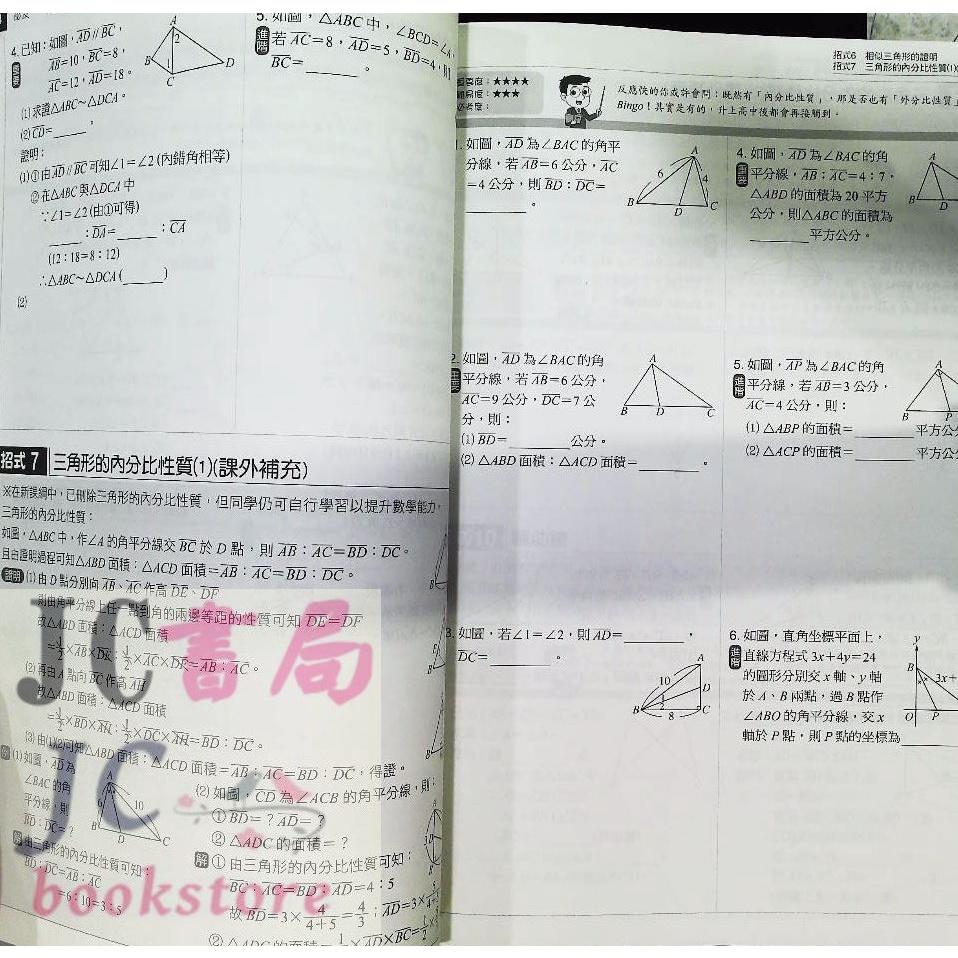 4. 已知：如圖，AD // BC，
AB=10，BC=8，
AC=12，AD=18。
(1) 求證△ABC～△DCA。
(2) CD=______。
證明：
(1) ① 由AD // BC可知∠1=∠2 (內錯角相等)
② 在△ABC與△DCA中
∵∠1=∠2 (由①可得)
______：DA=______：CA
(12：18=8：12)
∴△ABC～△DCA (______)
(2)
A
2
B
1
C
D
5. 如圖，△ABC中，∠BCD=∠A，
進階
若AC=8，AD=5，BD=4，則
BC=______。
招式 7
三角形的內分比性質(1)(課外補充)
※在新課綱中，已刪除三角形的內分比性質，但同學仍可自行學習以提升數學能力。
三角形的內分比性質：
如圖，△ABC中，作∠A的角平分線交BC於D點，則AB：AC=BD：DC。
且由證明過程可知△ABD面積：△ACD面積=AB：AC=BD：DC。
證明 (1) 由D點分別向AB、AC作高DE、DF
則由角平分線上任一點到角的兩邊等距的性質可知DE=DF
故△ABD面積：△ACD面積
=1/2×AB×DE：1/2×AC×DF=AB：AC。
(2) 再由A點向BC作高AH
故△ABD面積：△ACD面積
=1/2×BD×AH：1/2×DC×AH=BD：DC。
(3) 由(1)(2)可知△ABD面積：△ACD面積=AB：AC=BD：DC，得證。
例 (1) 如圖，AD為
∠BAC的角
平分線，則
BD：DC=？
A
6
10
B
D
C
解 由三角形的內分比性質可知：
BD：DC=AB：AC
=6：10=3：5
(2) 如圖，CD為∠ACB的角平分線，則：
① BD=？AD=？
② △ADC的面積=？
解 ① 由三角形的內分比性質可知：
BC：AC=BD：AD=4：5
故BD=3×4/(4+5)=4/3；AD=3×5/
② △ADC的面積=1/2×AD×BC=1/2×
JC書局
JC
bookstore
招式6 相似三角形的證明
招式7 三角形的內分比性質(1)(
要度：★★★★
易度：★★★
必考度：
反應快的你或許會問：既然有「內分比性質」，那是否也有「外分比性質」
Bingo！其實是有的，升上高中後都會再接觸到。
1. 如圖，AD為∠BAC的角平
分線，若AB=6公分，AC
=4公分，則BD：DC=
______。
A
6
4
B
D
C
2. 如圖，AD為∠BAC的角
重要
平分線，若AB=6公分，
AC=9公分，DC=7公
分，則：
(1) BD=______公分。
(2) △ABD面積：△ACD面積=______。
A
B
D
C
3. 如圖，若∠1=∠2，則AD=______，
DC=______。
A
10
D
B
1
2
C
8
4. 如圖，AD為∠BAC的角
重要
平分線，AB：AC=4：7，
△ABD的面積為20平方
公分，則△ABC的面積為
______平方公分。
A
B
D
5. 如圖，AP為∠BAC的角
進階
平分線，若AB=3公分，
AC=4公分，則：
(1) △ABP的面積=______平方公
(2) △ACP的面積=______平方公
A
B
P
6. 如圖，直角坐標平面上，
進階
直線方程式3x+4y=24
的圖形分別交x軸、y軸
於A、B兩點，過B點作
∠ABO的角平分線，交x
軸於P點，則P點的坐標為______
y
B
3x+
O
P